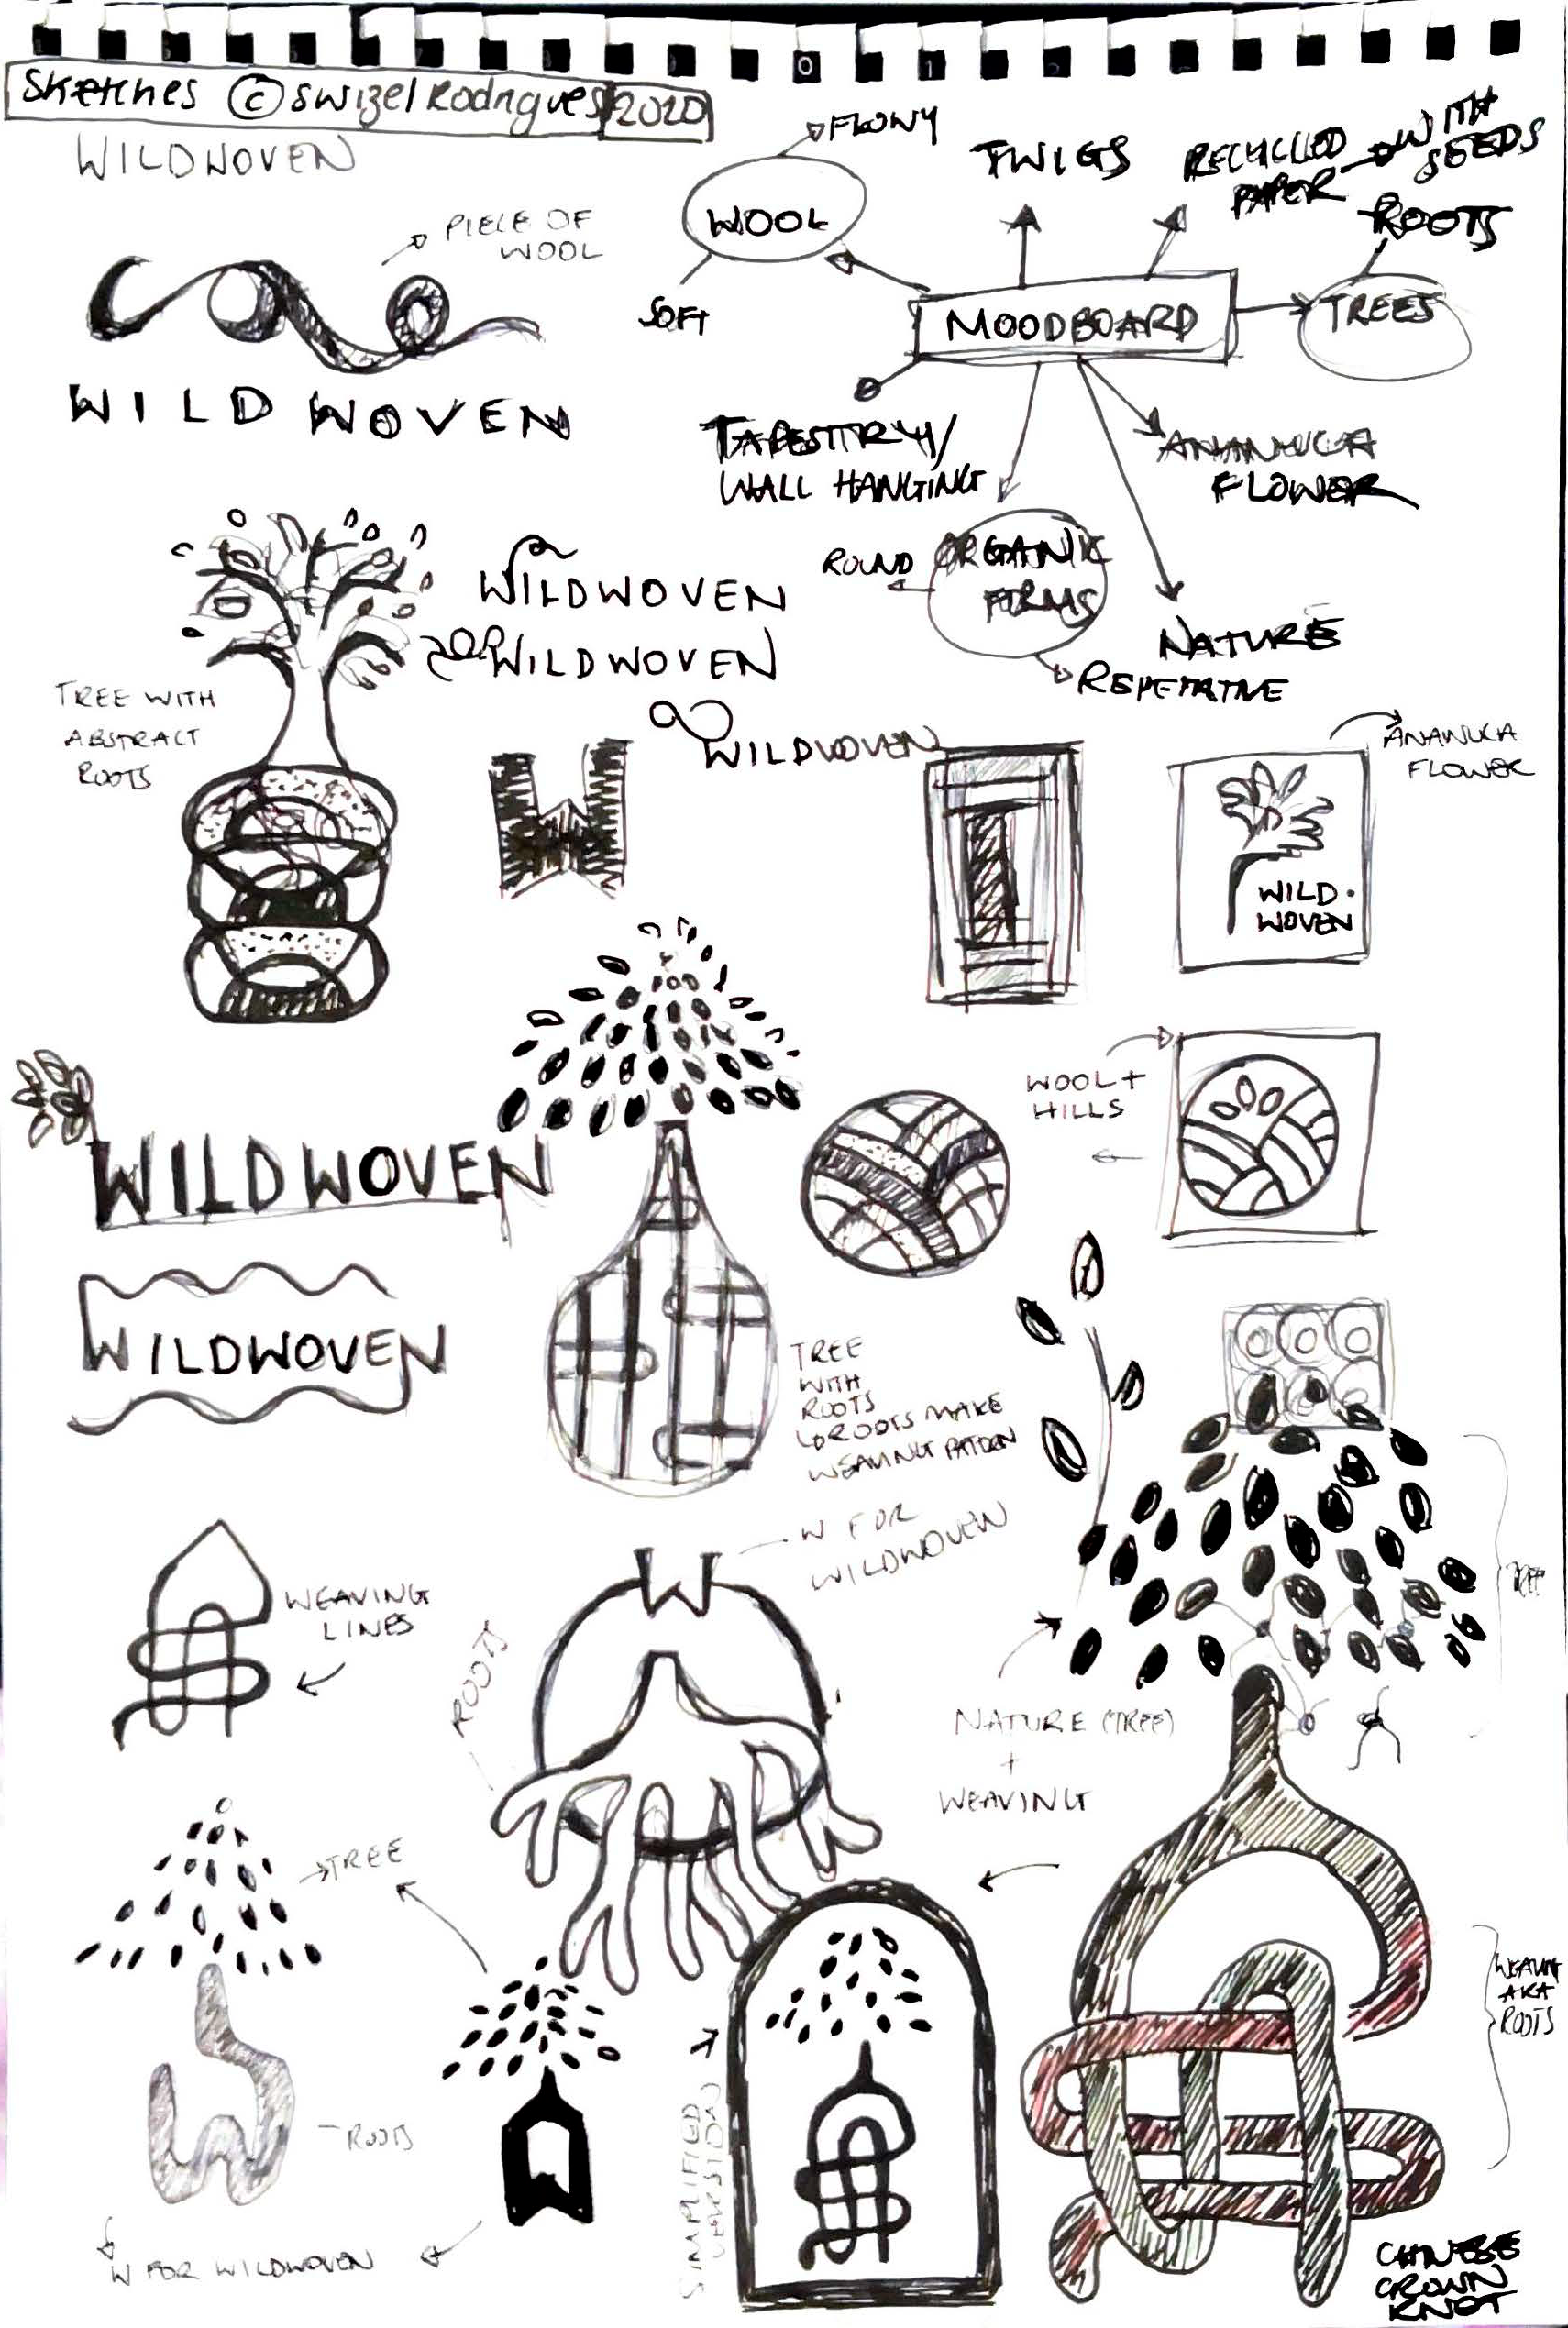 Sketches © Swizel Rodrigues 2020
WILDWOVEN
PIECE OF
WOOL
WILD WOVEN
FLOWY
WOOL
SOFT
TWIGS
RECYCLLED
PAPER
WITH
SEEDS
ROOTS
TREES
MOODBOARD
TAPESTTRY/
WALL HANGING
ANANUCA
FLOWER
ROUND
ORGANIC
FORMS
REPETATIVE
NATURE
TREE WITH
ABSTRACT
ROOTS
WILDWOVEN
WILDWOVEN
WILDWOVEN
W
ANANUCA
FLOWER
WILD.
WOVEN
WOOL +
HILLS
WILDWOVEN
WILDWOVEN
TREE
WITH
ROOTS
ROOTS MAKE
WEAVING PATTERN
WEAVING
LINES
W FOR
WILDWOVEN
W
ROOTS
NATURE (TREE)
+
WEAVING
TREE
TREE
ROOTS
W FOR WILDWOVEN
SIMPLIFIED
VERSION
WEAVING
AKA
ROOTS
CHINESE
CROWN
KNOT